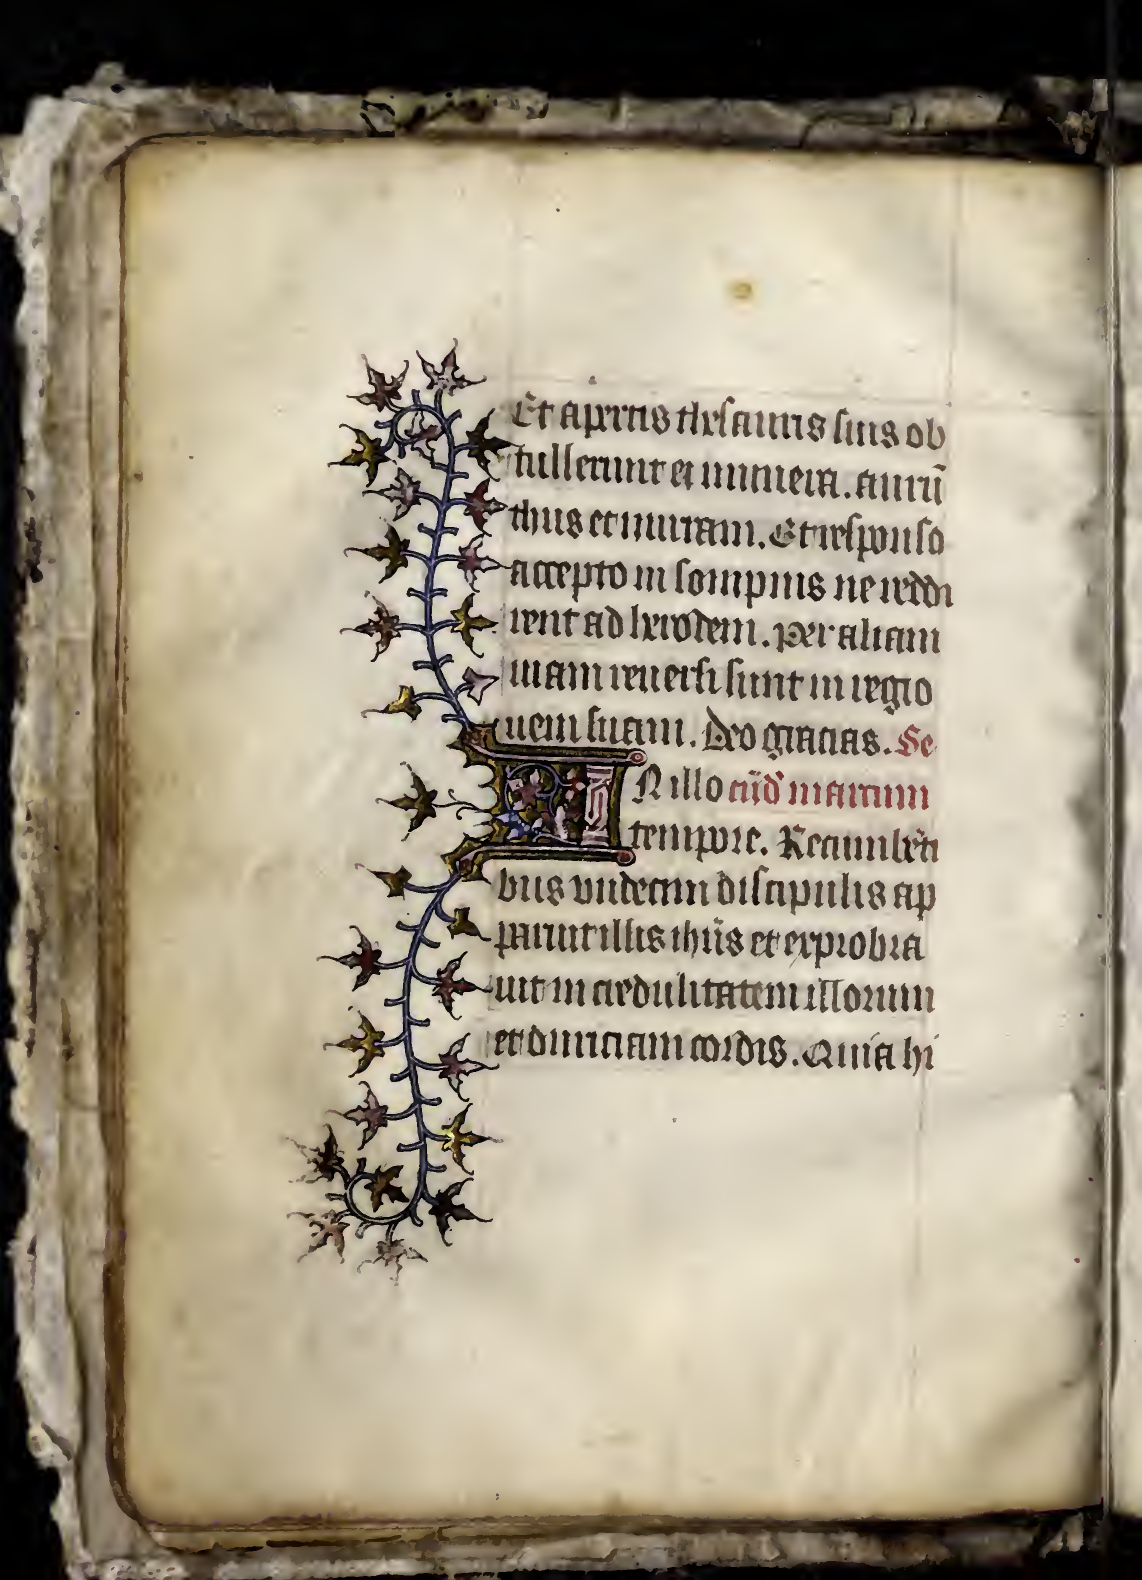 Et apertis thesauris suis ob
tullerunt ei munera. aurū
thus et mirram. Et respō̄so
accepto in sompnis ne reddi
rent ad herodem. per aliam
uiam reuersi sunt in regio
nem suam. Deo gracias. Se
IN illo cūd' marcum
tempore. Recumbēti
bus undecim discipulis ap
paruit illis ihūs et exprobra
uit incredulitatem illorum
et duriciam cordis. Quia hi